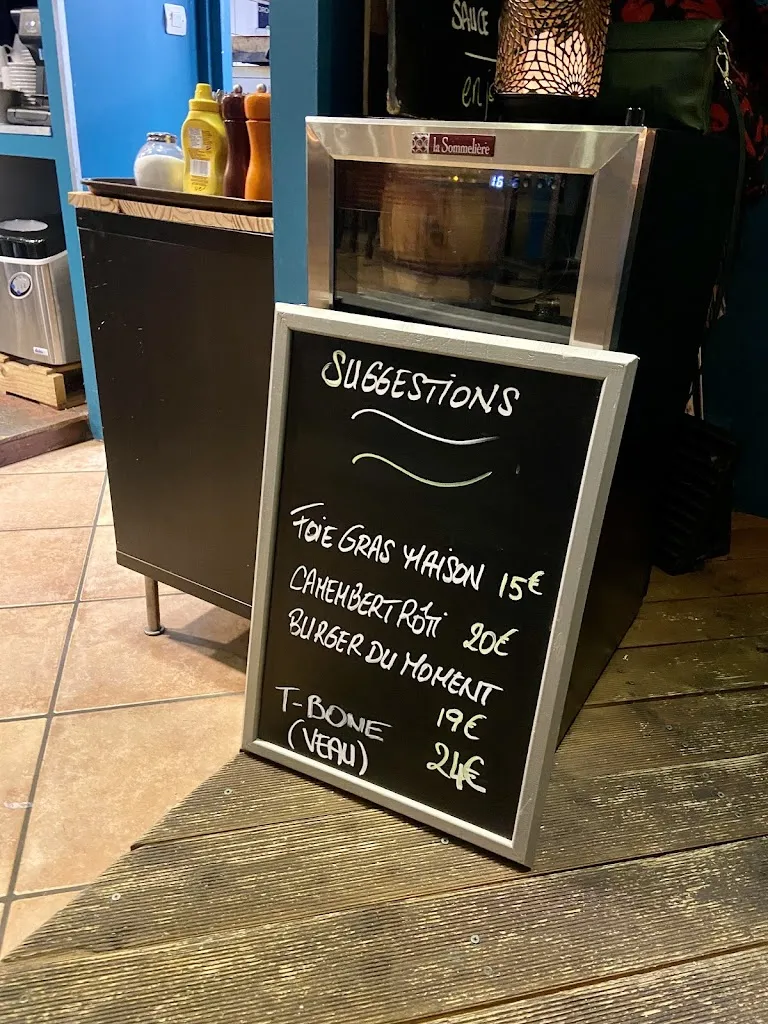 SAUCE
la Sommelière
16
SUGGESTIONS
FOIE GRAS MAISON 15€
CAMEMBERT RÔTI 20€
BURGER DU MOMENT
19€
T-BONE
(VEAU) 24€